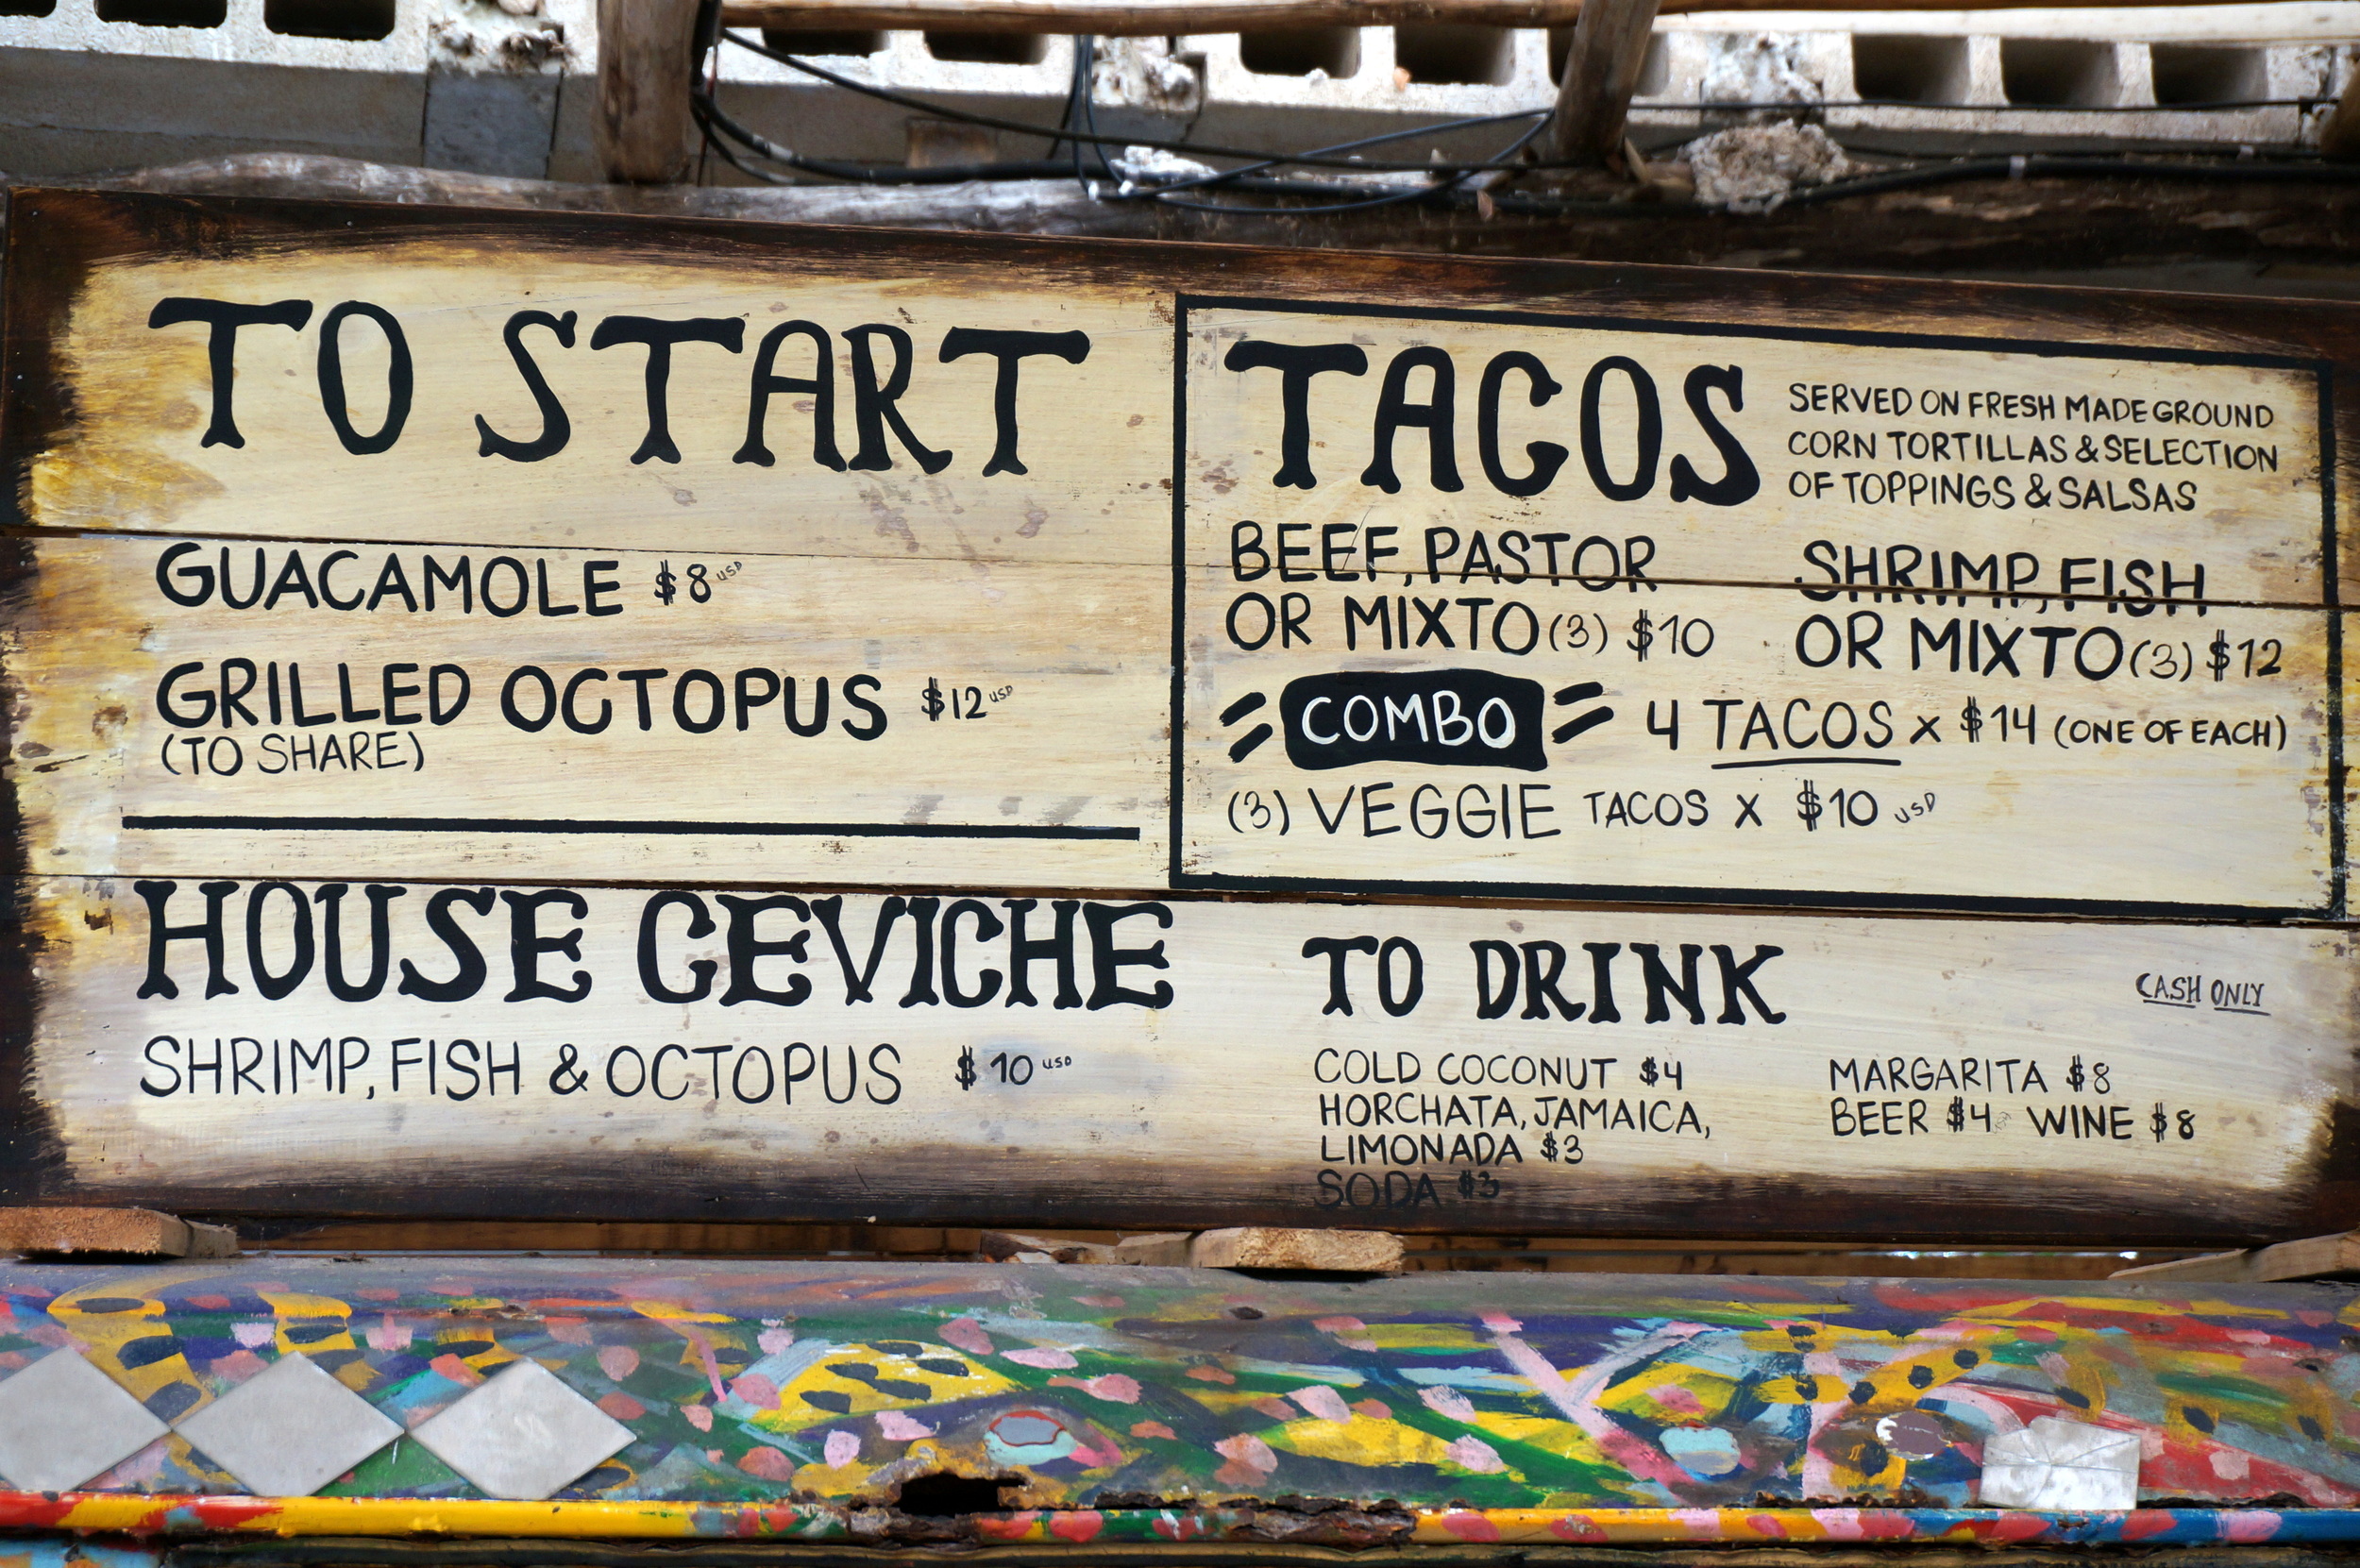 TO START
GUACAMOLE $8 USD
GRILLED OCTOPUS $12 USD
(TO SHARE)
HOUSE CEVICHE
SHRIMP, FISH & OCTOPUS $10 USD
TACOS
SERVED ON FRESH MADE GROUND
CORN TORTILLAS & SELECTION
OF TOPPINGS & SALSAS
BEEF, PASTOR
OR MIXTO (3) $10
SHRIMP, FISH
OR MIXTO (3) $12
= COMBO = 4 TACOS x $14 (ONE OF EACH)
(3) VEGGIE TACOS X $10 USD
TO DRINK
CASH ONLY
COLD COCONUT $4
HORCHATA, JAMAICA,
LIMONADA $3
SODA $3
MARGARITA $8
BEER $4 WINE $8